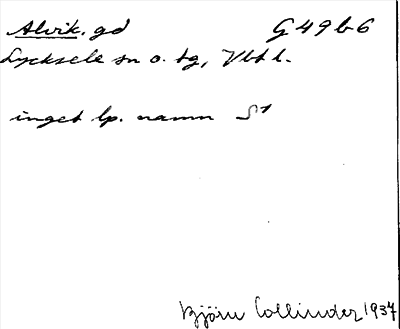 Alvik. gd G 49 b 6
Lycksele sn o. tg, Vbt l.
inget lp. namn S1
Björn Collinder 1937